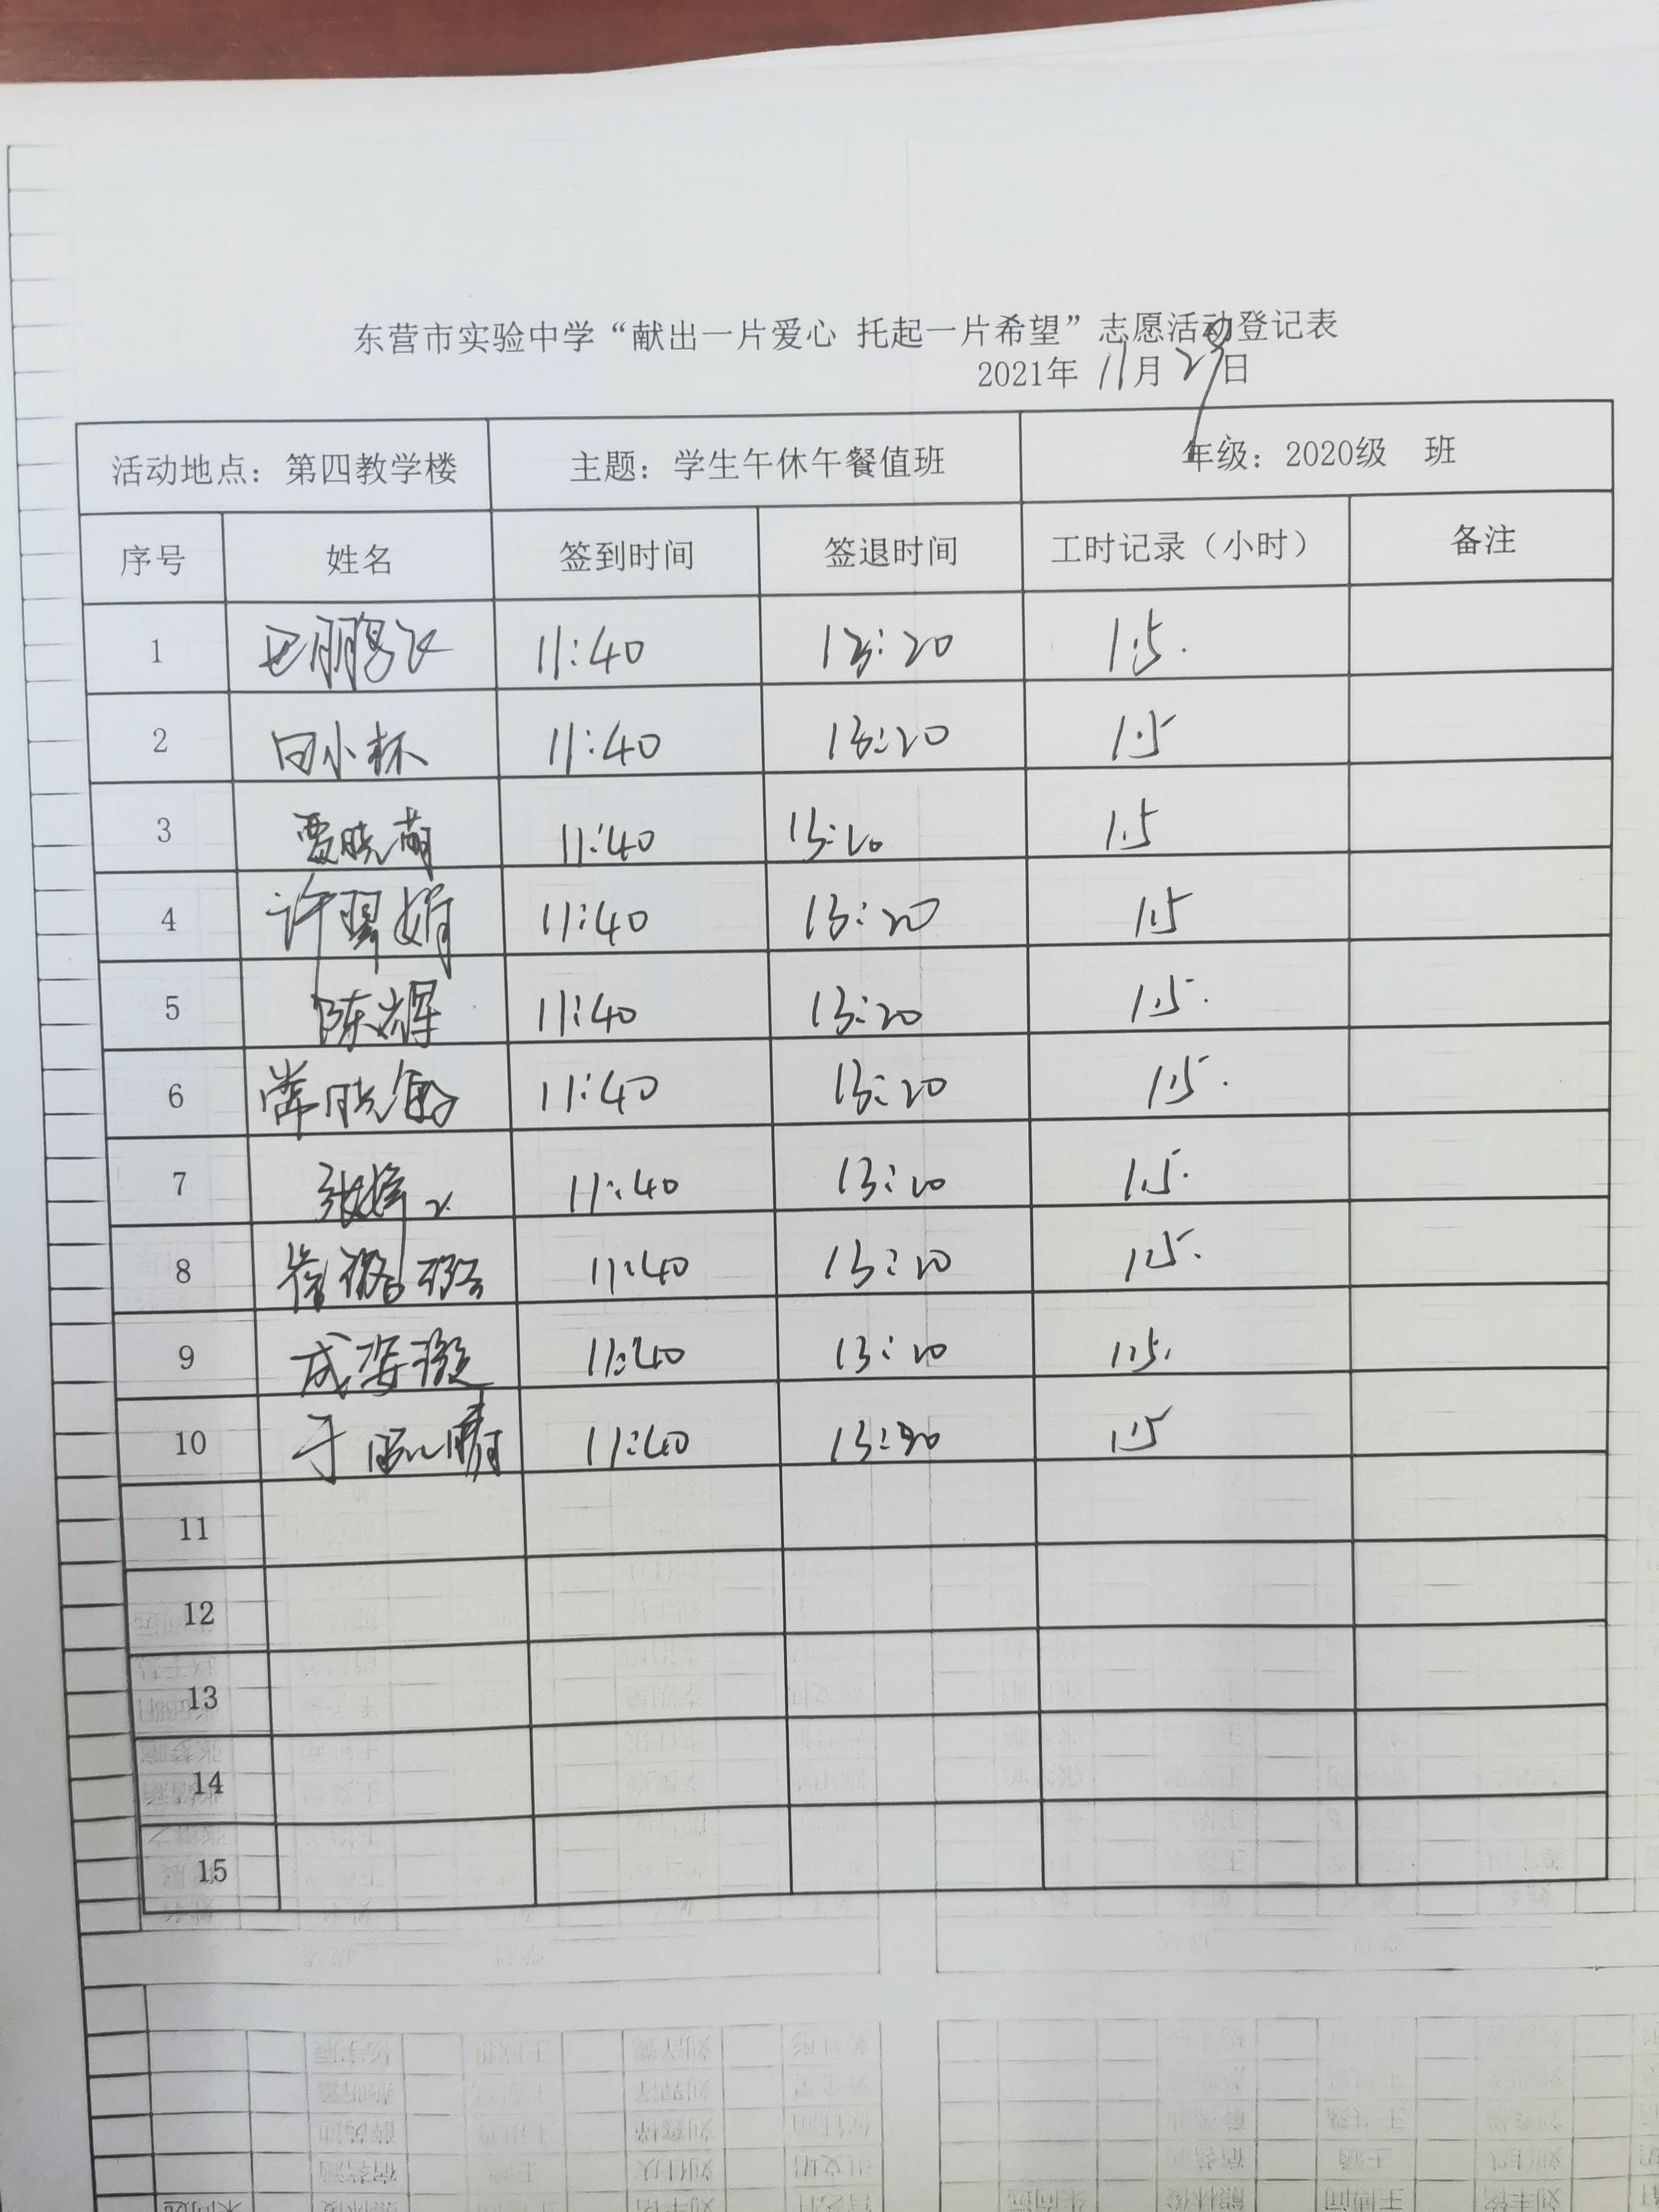 东营市实验中学“献出一片爱心 托起一片希望”志愿活动登记表
2021年 11月 29日
活动地点：第四教学楼 主题：学生午休午餐值班 年级：2020级 班
序号 姓名 签到时间 签退时间 工时记录（小时） 备注
1 11:40 13:20 1.5.
2 田小杯 11:40 13:20 1.5
3 贾晓萌 11:40 13:20 1.5
4 许翠娟 11:40 13:20 1.5
5 陈辉 11:40 13:20 1.5.
6 常晓敏 11:40 13:20 1.5.
7 11:40 13:20 1.5.
8 崔璐瑶 11:40 13:20 1.5.
9 成姿璇 11:40 13:20 1.5.
10 于 11:40 1.5
11
12
13
14
15